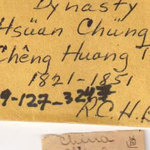 Dynasty
Hsüan Chüng
Chêng Huang T
1821-1851
9-127-324
R.C.H.
China